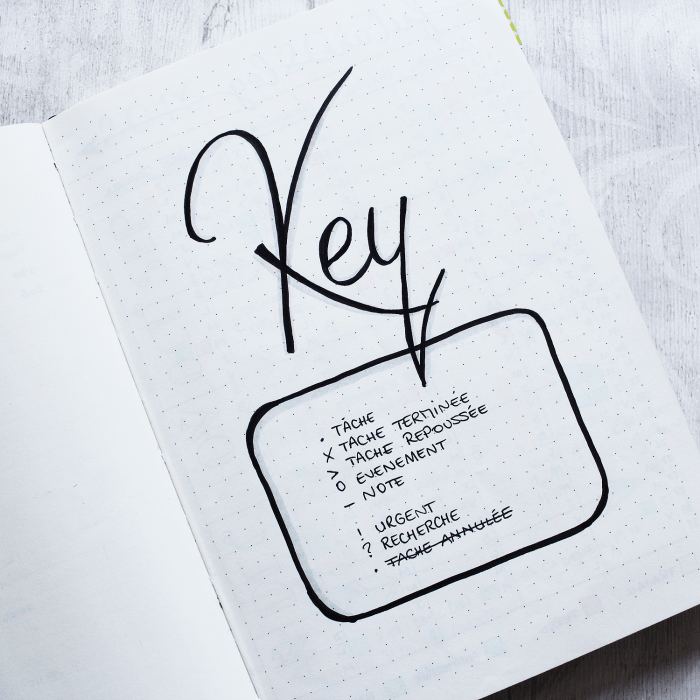 Key
. TÂCHE
X TACHE TERMINÉE
> TACHE REPOUSSÉE
O EVENEMENT
- NOTE
! URGENT
? RECHERCHE
. TACHE ANNULÉE